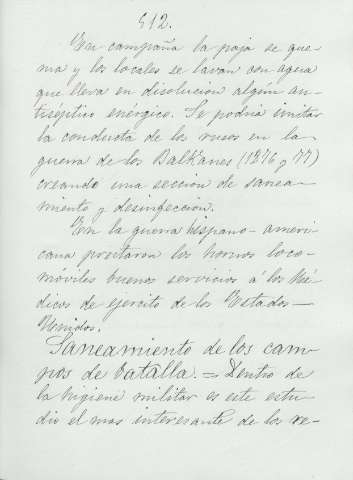 512.
En campaña la paja se que-
ma y los locales se lavan con agua
que lleva en disolucion algún an-
tiséptico enérgico. Se podria imitar
la conducta de los rusos en la
guerra de los Balkanes (1876 y 77)
creando una seccion de sanea-
miento y desinfeccion.
En la guerra hispano-ameri-
cana prestaron los hornos loco-
móviles buenos servicios á los Mé-
dicos de ejercito de los Estados-
Unidos.
Saneamiento de los cam-
pos de batalla. = Dentro de
la higiene militar es este estu-
dio el mas interesante de los re-